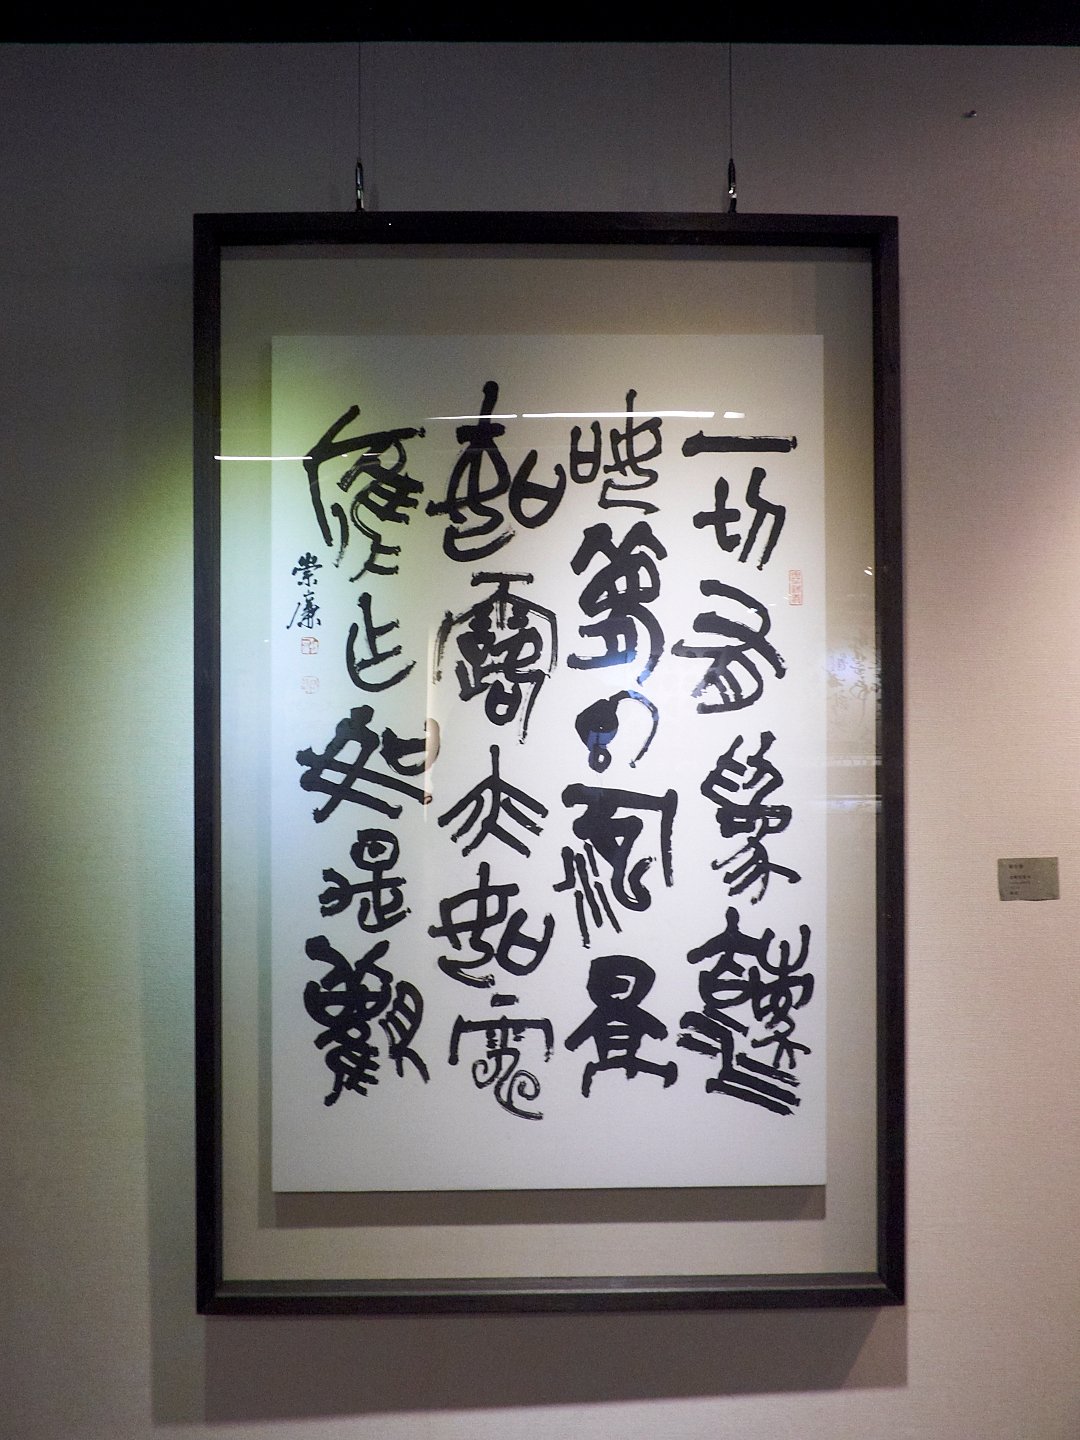 一切有為法
如夢幻泡影
如露亦如電
應作如是觀
崇廉